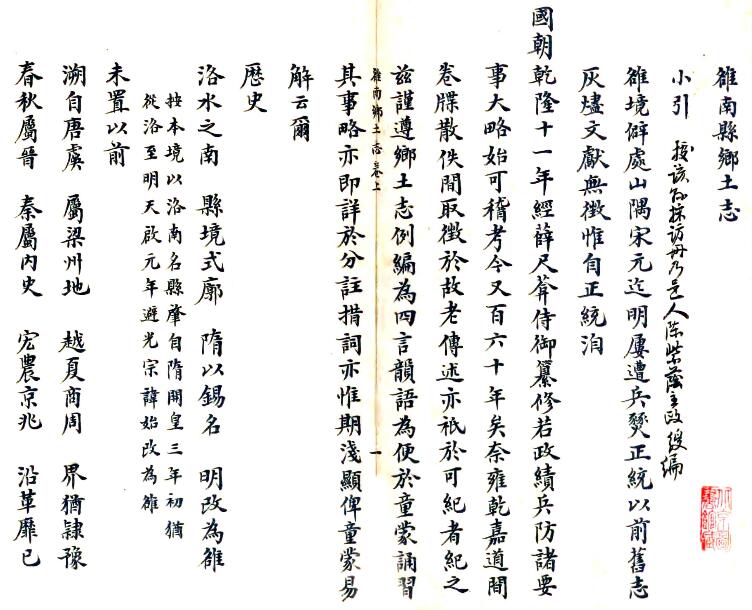 雒南縣鄉土志
小引 按該縣採訪冊乃邑人陳紫蔭主政後編
雒境僻處山隅宋元迄明屢遭兵燹正統以前舊志
灰燼文獻無徵惟自正統洎
國朝乾隆十一年經薛尺葊侍御纂修若政績兵防諸要
事大略始可稽考今又百六十年矣奈雍乾嘉道間
卷牒散佚間取徵於故老傳述亦祇於可紀者紀之
茲謹遵鄉土志例編為四言韻語為便於童蒙誦習
雒南鄉土志卷上 一
其事略亦即詳於分註措詞亦惟期淺顯俾童蒙易
解云爾
歷史
洛水之南 縣境式廓 隋以錫名 明改為雒
按本境以洛南名縣肇自隋開皇三年初猶
從洛至明天啟元年避光宗諱始改為雒
未置以前
溯自唐虞 屬梁州地 越夏商周 界猶隸豫
春秋屬晉 秦屬內史 宏農京兆 沿革靡已